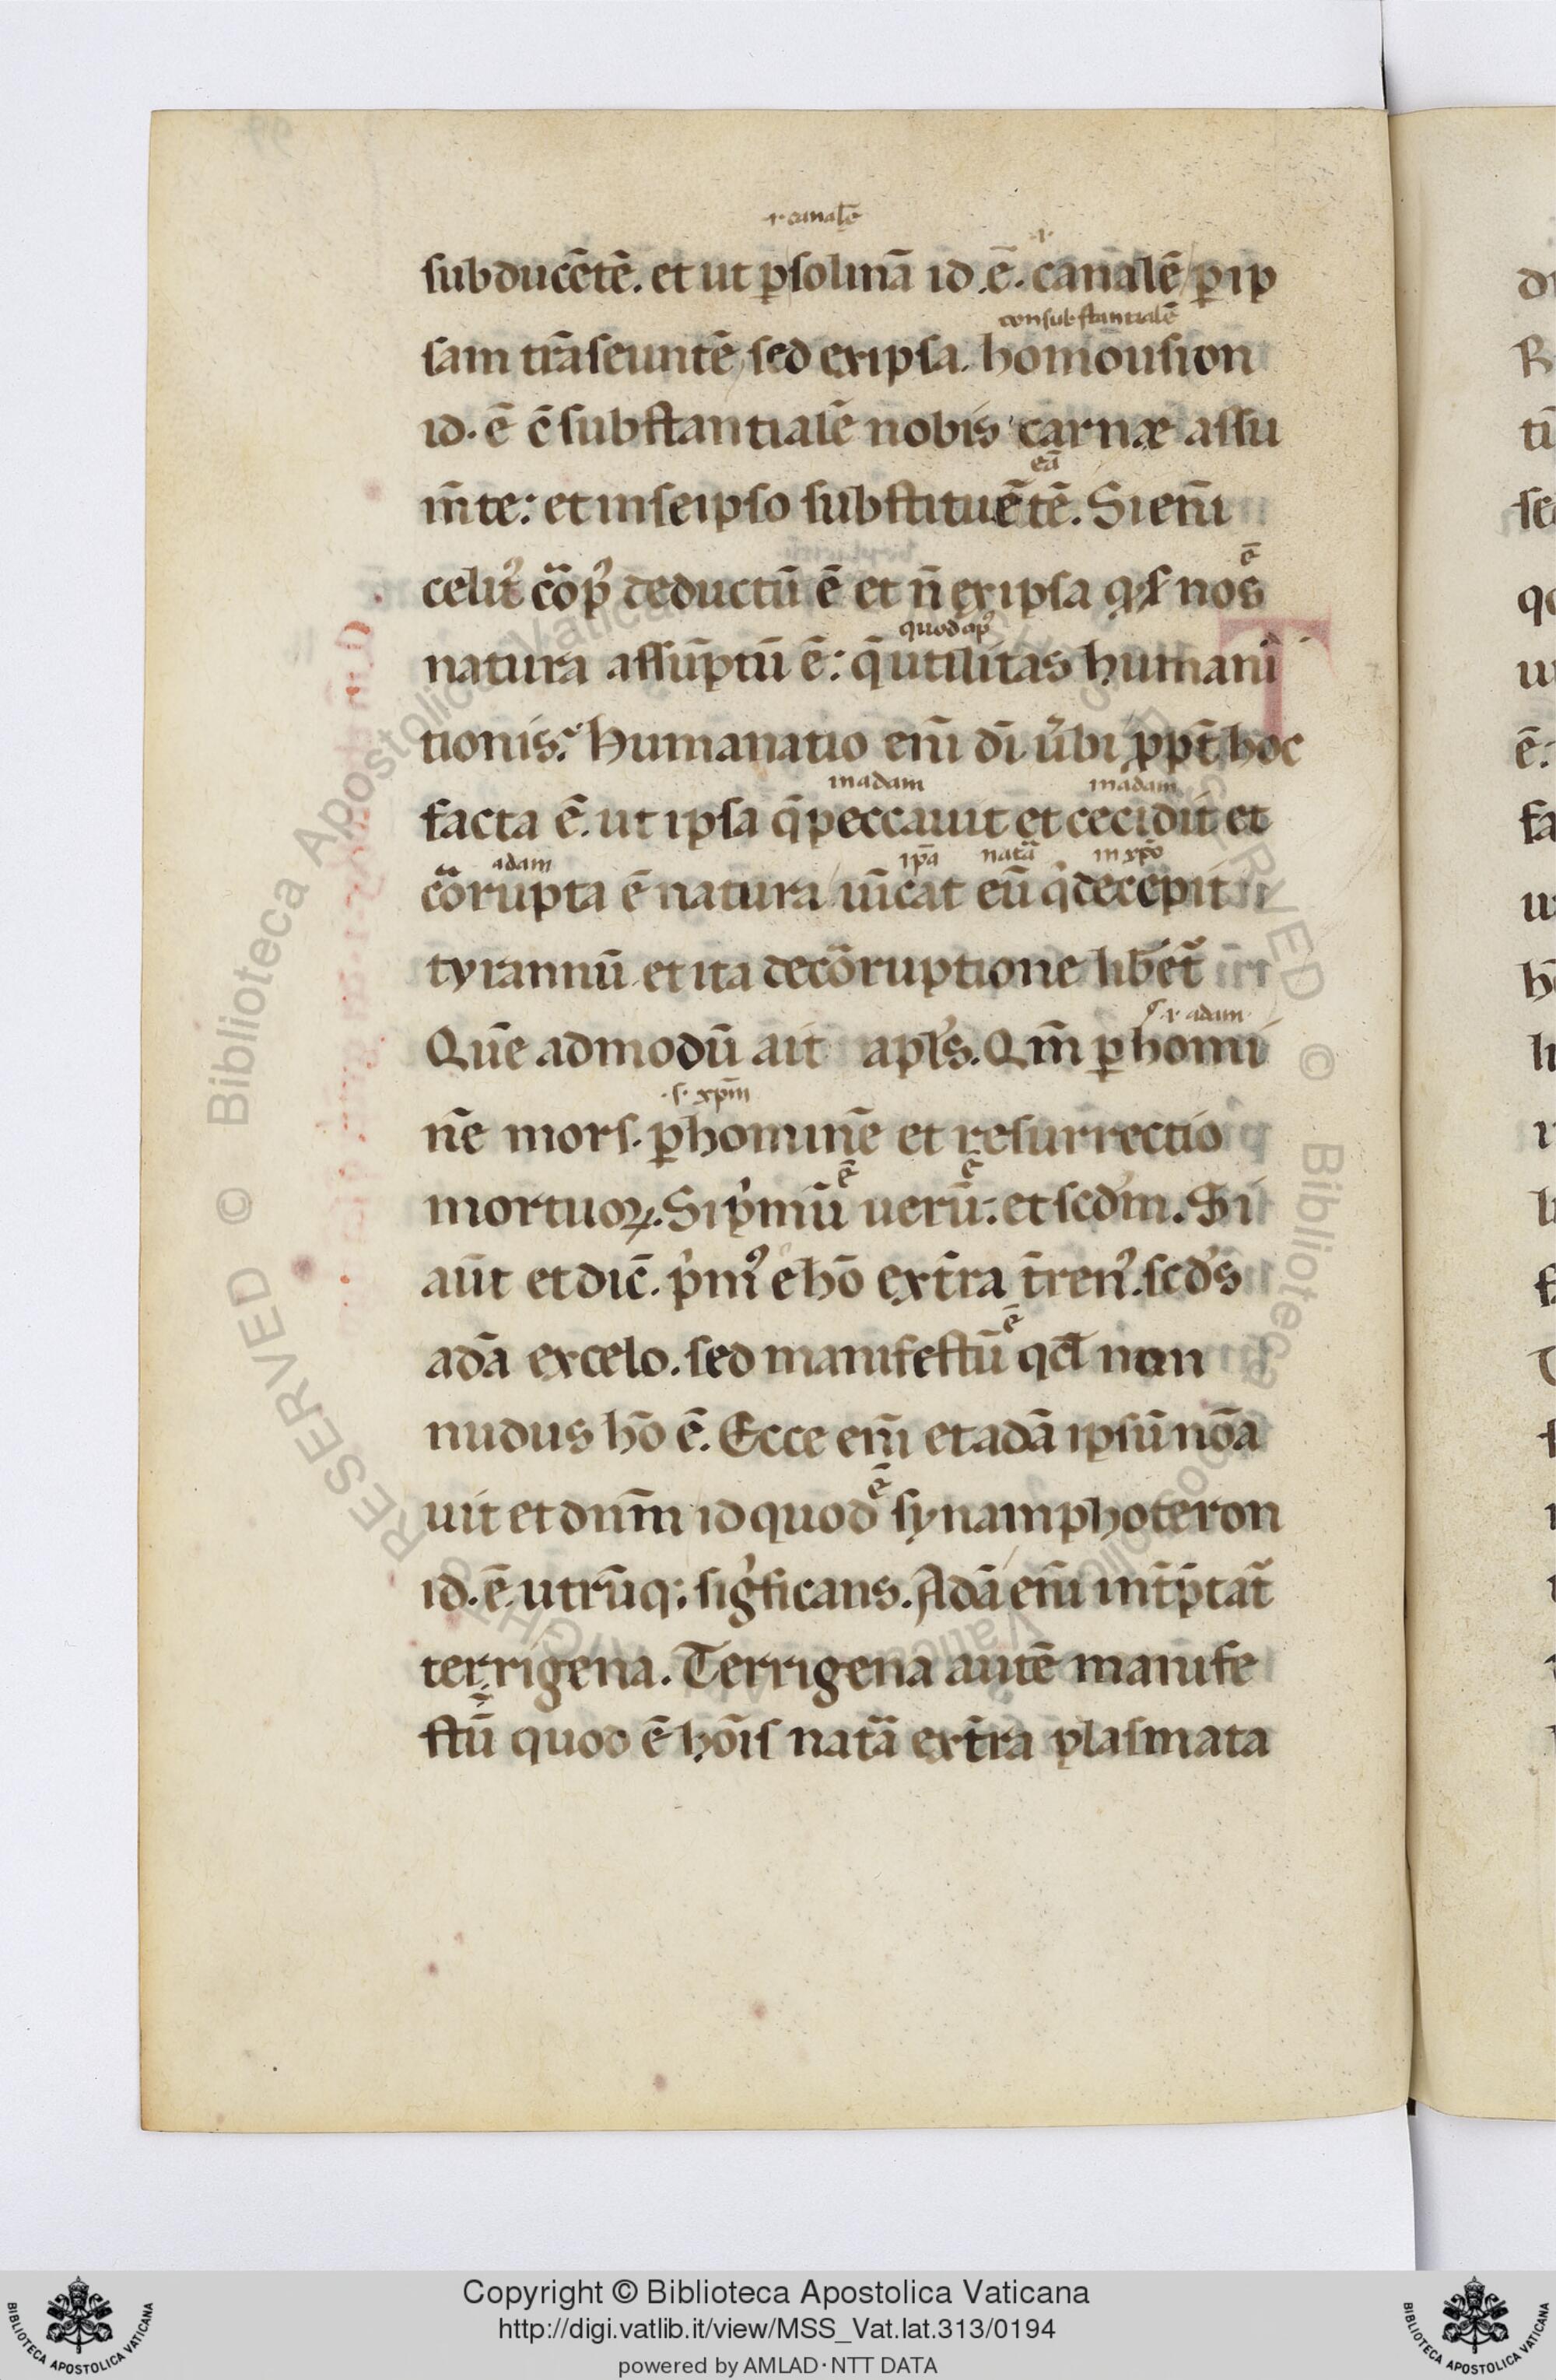 .i. canalē
subducētē. et ut ꝑ solinā id .ē. canalē ꝑ ip
consubstantialē
sam trāseuntē sed ex ipsa. homousion
id. ē c̄substantialē nobis carnē assu
eā
m̄te: et in seipso substituētē. Si eni̅
ē
celit᷒ corp᷒ deductū ē et n̄ ex ipsa nos
quod corp᷒
natura assūptū ē: q̄ utilitas humani
tionis. Humanatio eni̅ dī ūbi ꝓpt̄ hoc
in adam in adam
facta ē. ut ipsa q̄ peccauit et cecidit et
adam ip̄a natᷓa in xp̄o
cōrupta ē natura uīcat eū q̄ decepit
tyrannū et ita de cōruptione libet᷑
s. adam
Quē admodū ait apl̄s. Qm̄ ꝑ homi
.s. xp̄m
nē mors. ꝑ hominē et resurrectio
ē ē
mortuoꝝ. Si pͥmū uerū: et scd̄m. Si
aūt et dic̄. pͥm᷒ ē hō ex t̄ra t̄ren᷒. scd̄s
ē
adā ex celo. sed manifestū qd̄ non
nudus hō ē. Ecce eni̅ et adā ipsū nōa
ē
uit et dnm̄ id quod synamphoteron
id. ē utrūq; sigͥficans. Adā eni̅ int̄p̄tat᷑
terrigena. Terrigena autē manife
ē
stū quod ē hōis natᷓa ex t̄ra plasmata
Copyright © Biblioteca Apostolica Vaticana
http://digi.vatlib.it/view/MSS_Vat.lat.313/0194
powered by AMLAD·NTT DATA
BIBLIOTECA APOSTOLICA VATICANA
BIBLIOTECA APOSTOLICA VATICANA